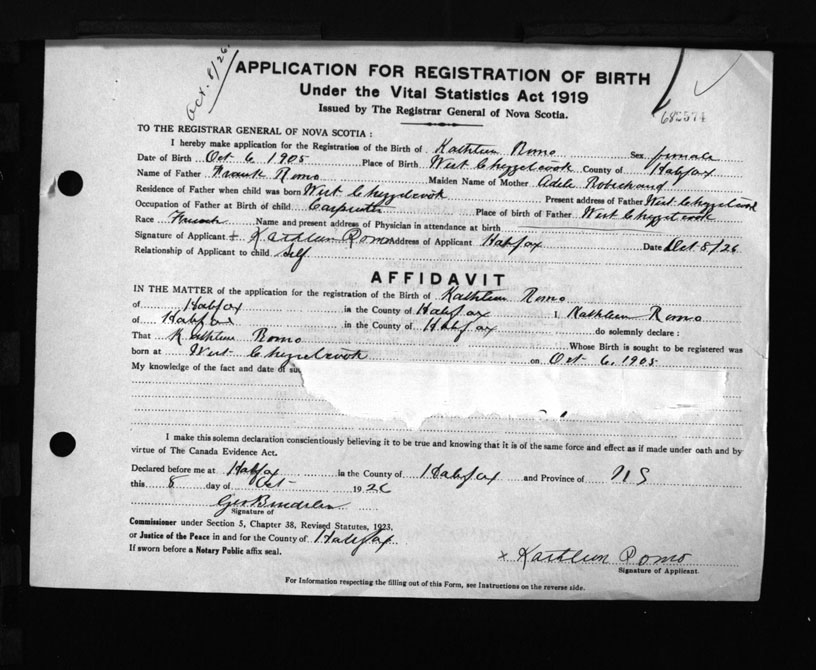 Oct. 8/26.
APPLICATION FOR REGISTRATION OF BIRTH
Under the Vital Statistics Act 1919
Issued by The Registrar General of Nova Scotia.
682574
TO THE REGISTRAR GENERAL OF NOVA SCOTIA:
I hereby make application for the Registration of the Birth of Kathleen Romo Sex female
Date of Birth Oct 6 1905 Place of Birth West Chezzetcook County of Halifax
Name of Father Romo Maiden Name of Mother Adele
Residence of Father when child was born West Chezzetcook Present address of Father West Chezzetcook
Occupation of Father at Birth of child Carpenter Place of birth of Father West Chezzetcook
Race French Name and present address of Physician in attendance at birth
Signature of Applicant + Kathleen Romo Address of Applicant Halifax Date Oct 8/26
Relationship of Applicant to child Self
AFFIDAVIT
IN THE MATTER of the application for the registration of the Birth of Kathleen Romo
of Halifax in the County of Halifax I, Kathleen Romo
of Halifax in the County of Halifax do solemnly declare:
That Kathleen Romo Whose Birth is sought to be registered was
born at West Chezzetcook on Oct 6, 1905
My knowledge of the fact and date of
I make this solemn declaration conscientiously believing it to be true and knowing that it is of the same force and effect as if made under oath and by
virtue of The Canada Evidence Act.
Declared before me at Halifax in the County of Halifax and Province of N S
this 8 day of Oct 1926
Signature of
Commissioner under Section 5, Chapter 38, Revised Statutes, 1923,
or Justice of the Peace in and for the County of Halifax
If sworn before a Notary Public affix seal.
x Kathleen Romo
Signature of Applicant.
For Information respecting the filling out of this Form, see Instructions on the reverse side.